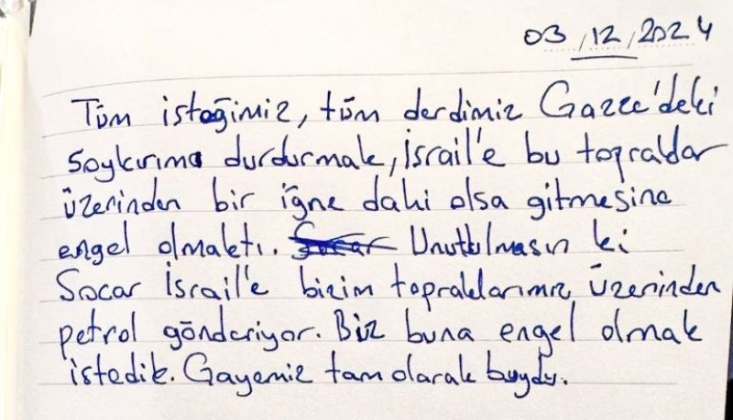 03/12/2024
Tüm isteğimiz, tüm derdimiz Gazze'deki
soykırımı durdurmak, İsrail'e bu topraklar
üzerinden bir iğne dahi olsa gitmesine
engel olmaktı. Socar Unutulmasın ki
Socar İsrail'e bizim topraklarımız üzerinden
petrol gönderiyor. Biz buna engel olmak
istedik. Gayemiz tam olarak buydu.